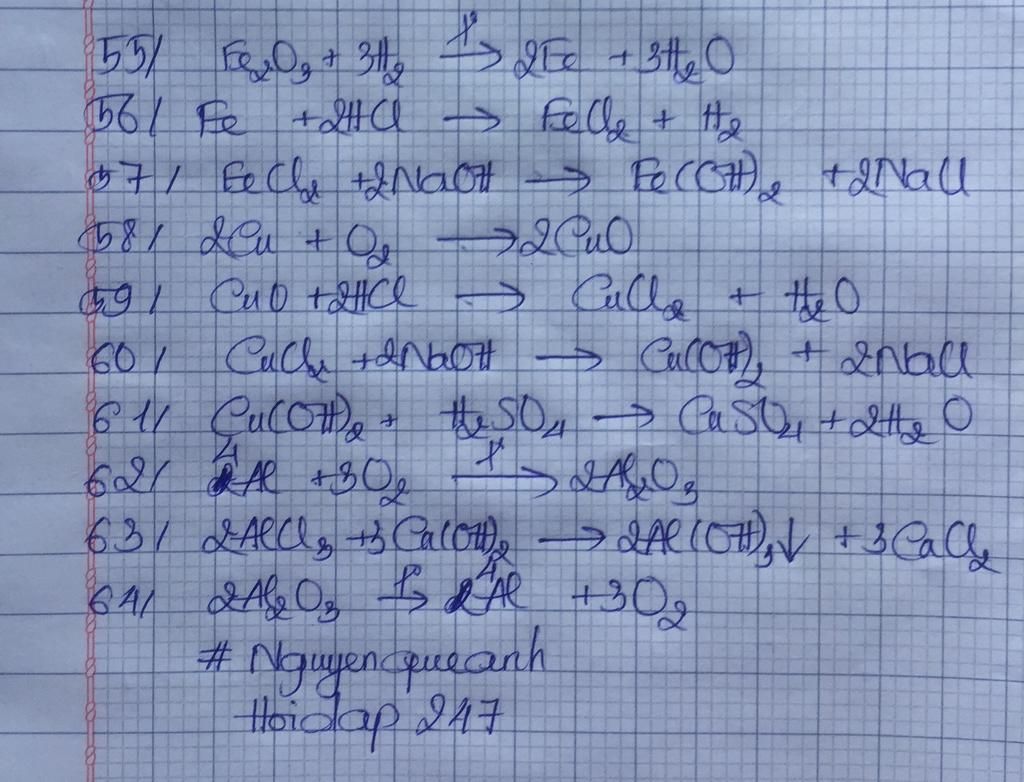 55/ Fe₂O₃ + 3H₂ –t°→ 2Fe + 3H₂O
56/ Fe + 2HCl → FeCl₂ + H₂
57/ FeCl₂ + 2NaOH → Fe(OH)₂ + 2NaCl
58/ 2Cu + O₂ → 2CuO
59/ CuO + 2HCl → CuCl₂ + H₂O
60/ CuCl₂ + 2NaOH → Cu(OH)₂ + 2NaCl
61/ Cu(OH)₂ + H₂SO₄ → CuSO₄ + 2H₂O
62/ 4Al + 3O₂ –t°→ 2Al₂O₃
63/ 2AlCl₃ + 3Ca(OH)₂ → 2Al(OH)₃↓ + 3CaCl₂
64/ 2Al₂O₃ –t°→ 4Al + 3O₂
# Nguyenqueanh
Hoidap 247